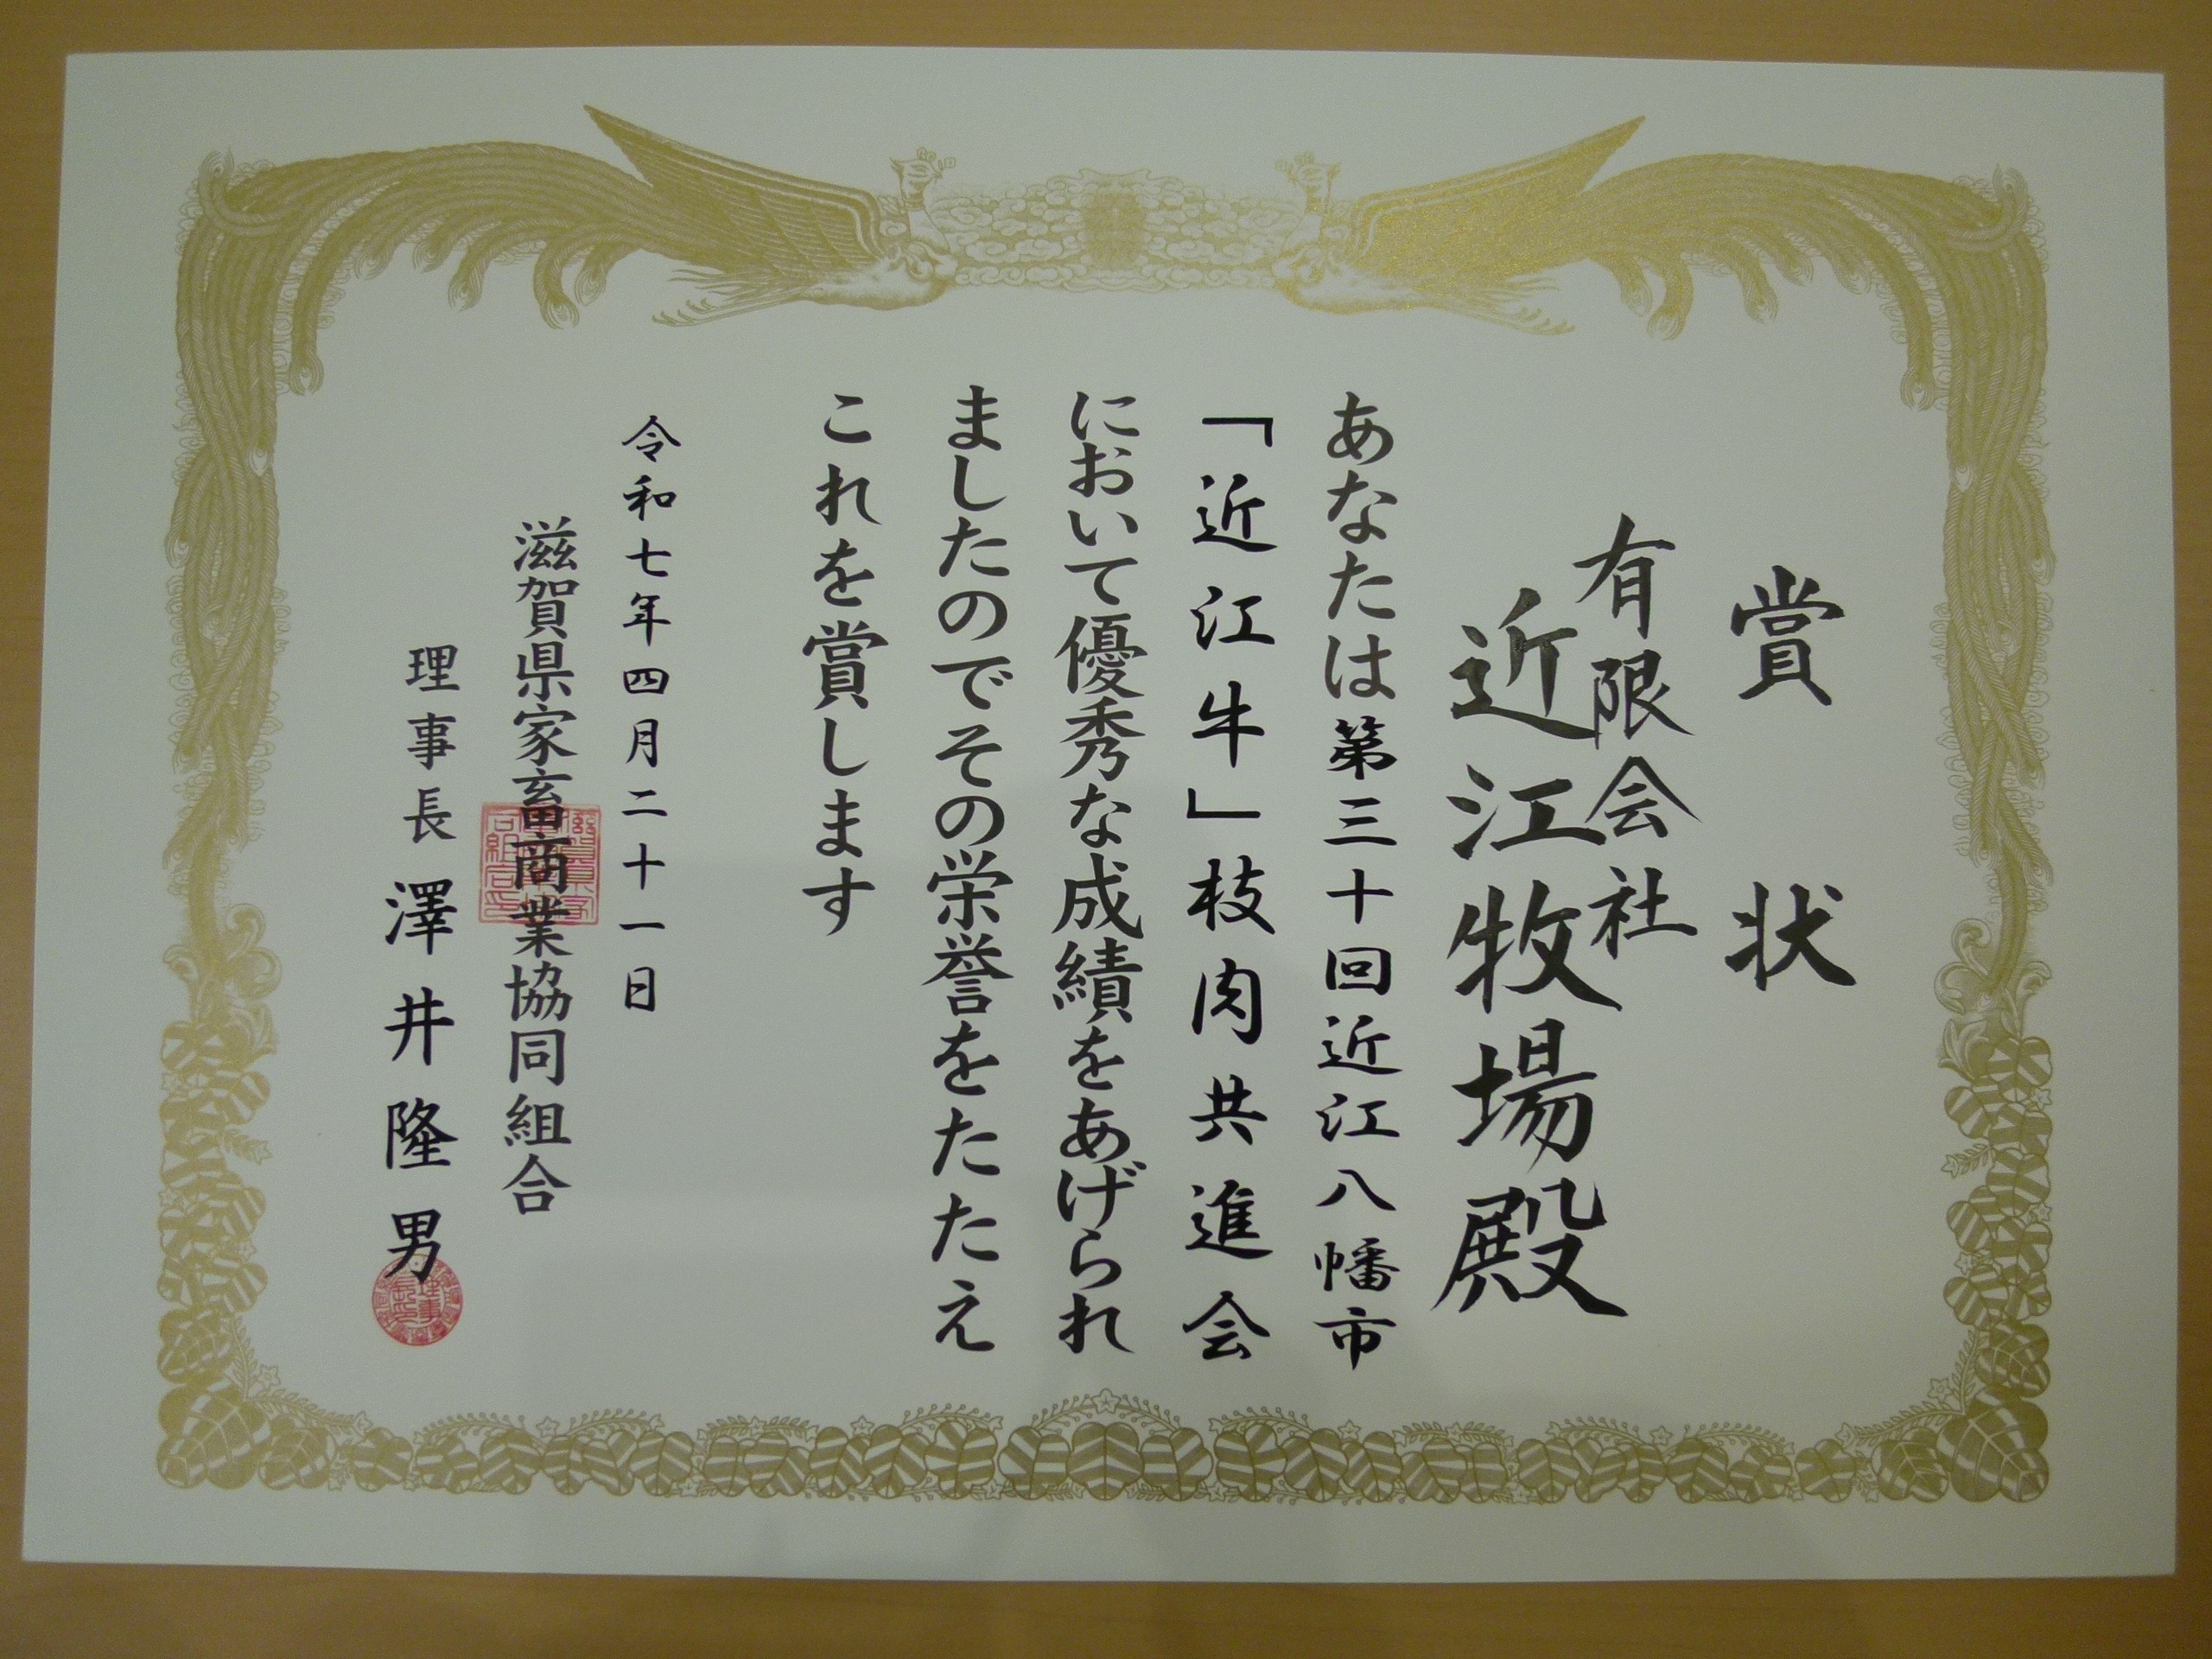 賞状
有限会社
近江牧場殿
あなたは第三十回近江八幡市
「近江牛」枝肉共進会
において優秀な成績をあげられ
ましたのでその栄誉をたたえ
これを賞します
令和七年四月二十一日
滋賀県家畜商業協同組合
理事長 澤井隆男